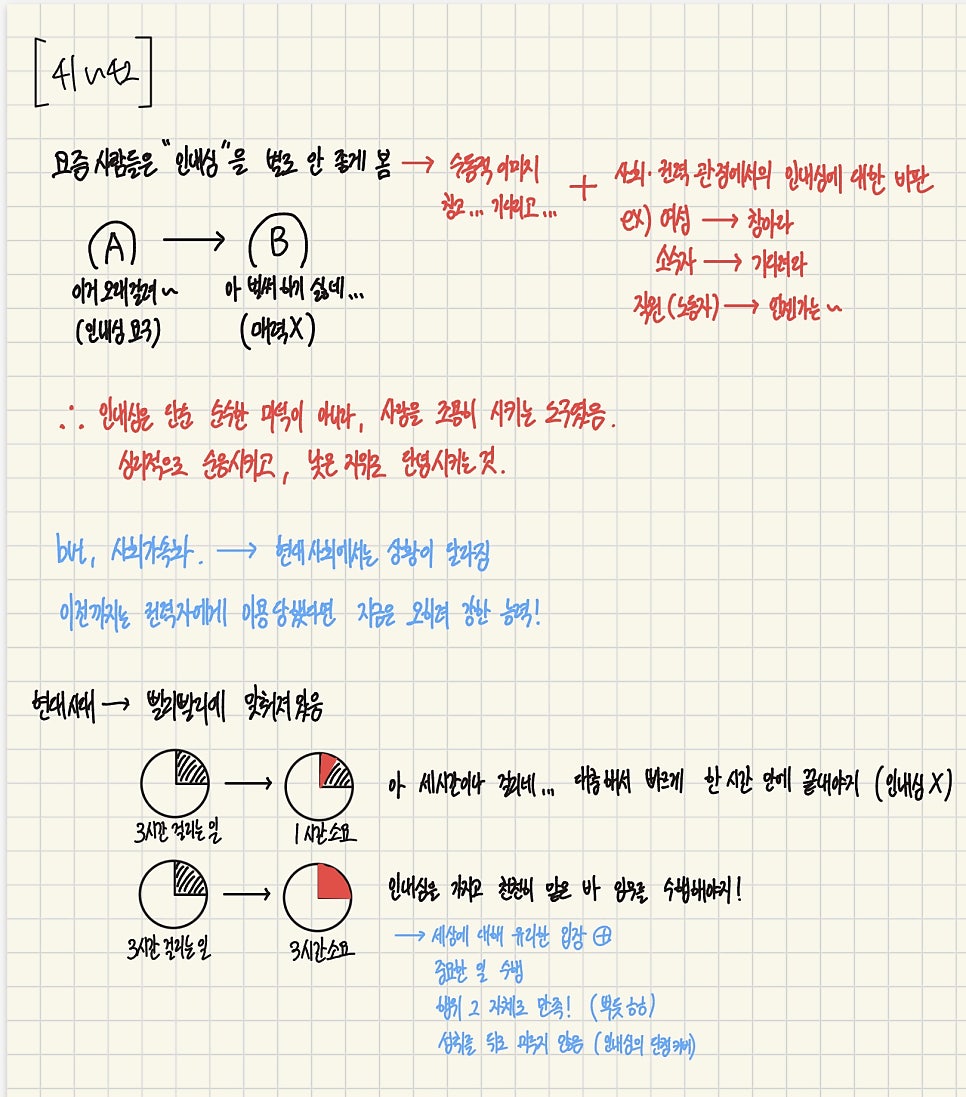 [41~42]
요즘 사람들은 "인내심"을 별로 안 좋게 봄 → 수동적 이미지
참고... 기다리고...
+ 사회·권력 관점에서의 인내심에 대한 비판
ex) 여성 → 참아라
소수자 → 기다려라
직원(노동자) → 언젠가는~
A → B
이거 오래걸려~
(인내심 요구)
아 벌써 하기 싫네...
(매력X)
∴ 인내심은 단순 순수한 미덕이 아니라, 사람을 조용히 시키는 도구였음.
심리적으로 순응시키고, 낮은 지위로 단념시키는 것.
but, 사회가속화. → 현대사회에서는 상황이 달라짐
이전까지는 권력자에게 이용당했다면 지금은 오히려 강한 능력!
현대시대 → 빨리빨리에 맞춰져있음
3시간 걸리는 일 → 1시간소요
아 세시간이나 걸리네... 대충해서 빠르게 한 시간 안에 끝내야지 (인내심X)
3시간 걸리는 일 → 3시간소요
인내심을 가지고 천천히 맡은 바 임무를 수행해야지!
→ 세상에 대해 유리한 입장 ⊕
중요한 일 수행
행위 그 자체로 만족! (뿌듯ㅎㅎ)
성취를 뒤로 미루지 않음 (인내심의 단점커버)